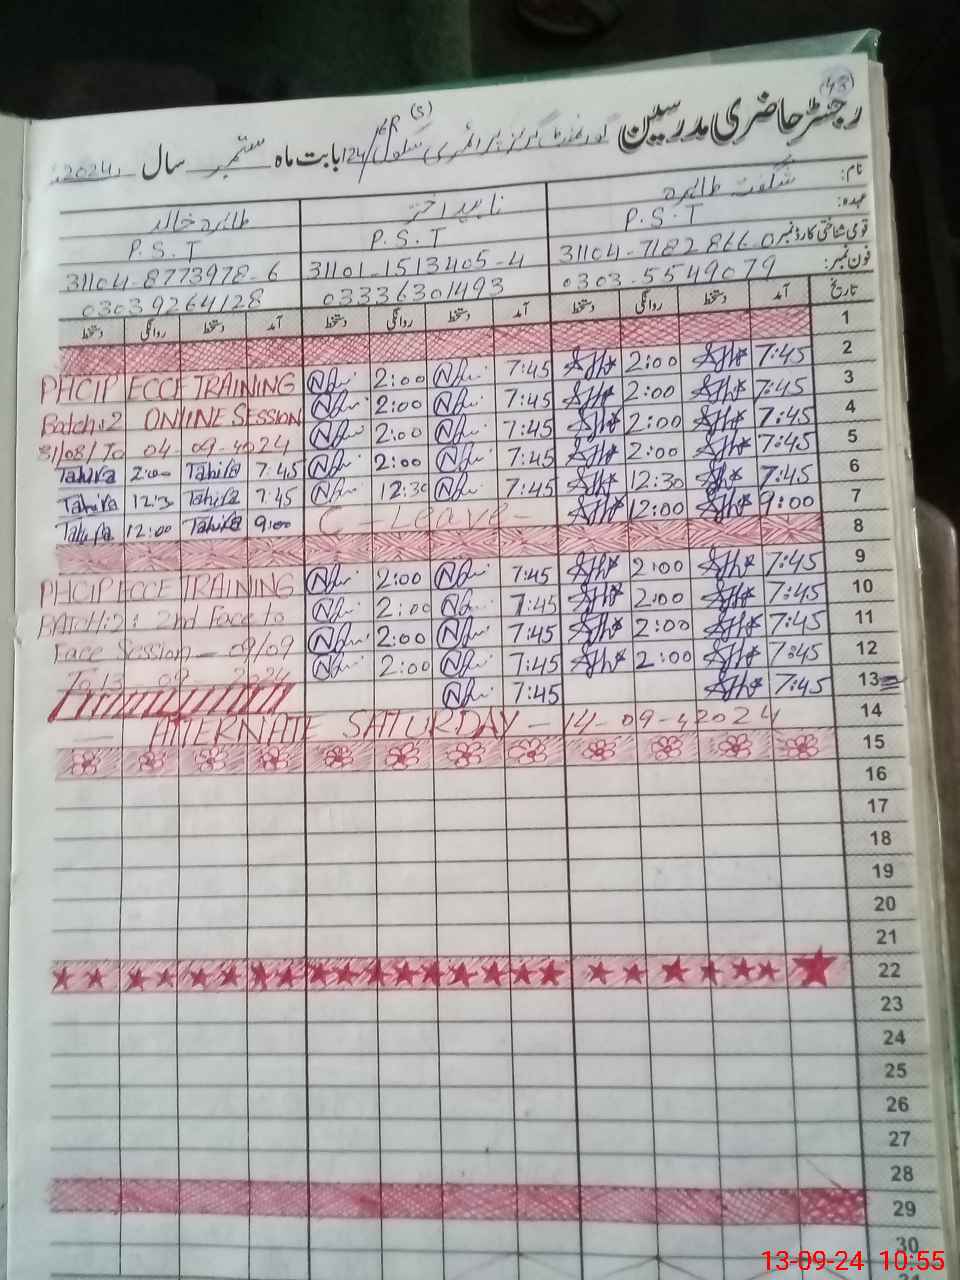 (43)
رجسٹر حاضری مدرسین گورنمنٹ گرلز پرائمری سکول 124/ER (S) بابت ماہ ستمبر سال 2024
نام: شگفتہ طاہرہ ناہید اختر طاہرہ خالد
عہدہ: P.S.T P.S.T P.S.T
قومی شناختی کارڈ نمبر 31104-7182866-0 31101-1513405-4 31104-8773978-6
فون نمبر: 0303-5549079 03336301493 03039264128
تاریخ آمد دستخط روانگی دستخط آمد دستخط روانگی دستخط آمد دستخط روانگی دستخط
1
PHCIP ECCE TRAINING 2:00 7:45 2:00 7:45 2
Batch:2 ONLINE SESSION 2:00 7:45 2:00 7:45 3
31/08/To 04-09-2024 2:00 7:45 2:00 7:45 4
Tahira 2:00 Tahira 7:45 2:00 7:45 2:00 7:45 5
Tahira 12:3 Tahira 7:45 12:30 7:45 12:30 7:45 6
Tahira 12:00 Tahira 9:00 C - Leave - 12:00 9:00 7
8
PHCIP ECCE TRAINING 2:00 7:45 2:00 7:45 9
BATCH:2: 2nd Face to 2:00 7:45 2:00 7:45 10
Face Session - 09/09 2:00 7:45 2:00 7:45 11
To 13 09 2024 2:00 7:45 2:00 7:45 12
7:45 7:45 13
— ALTERNATE SATURDAY - 14-09-2024 14
15
16
17
18
19
20
21
22
23
24
25
26
27
28
29
30
13-09-24 10:55